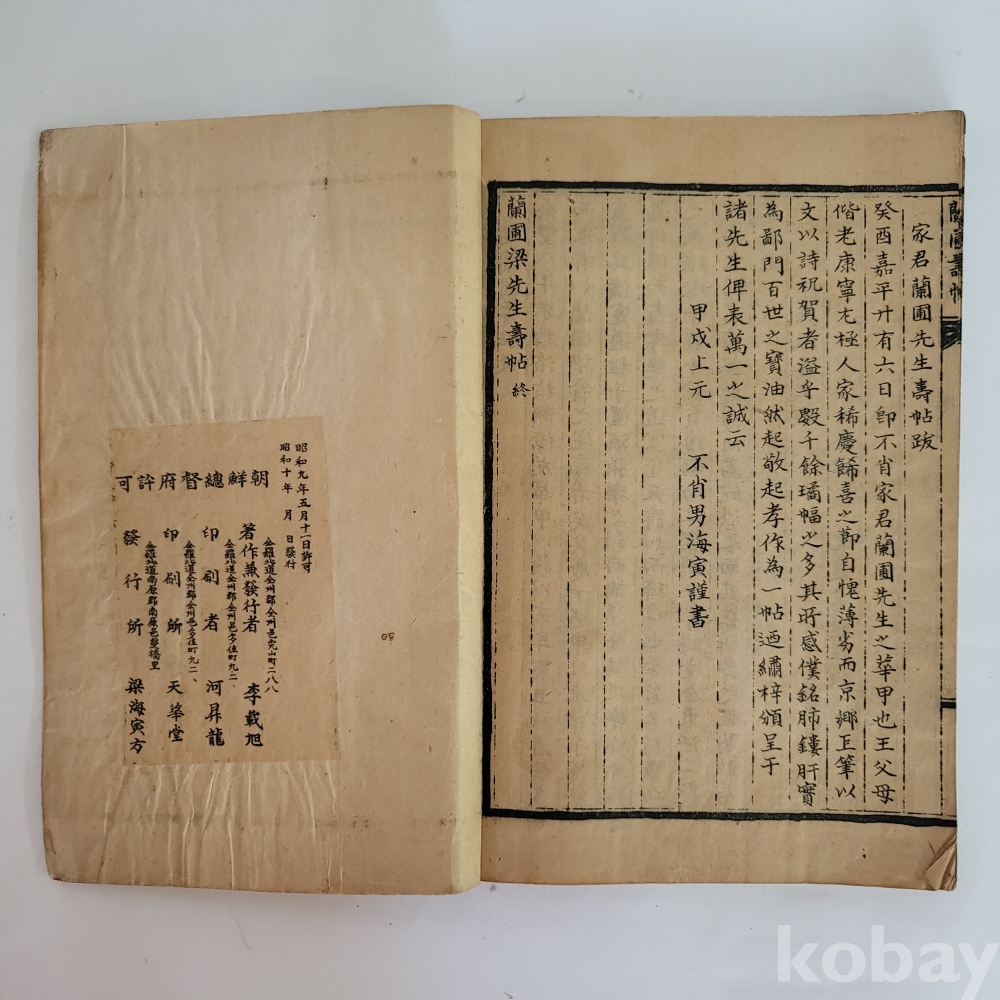 蘭圃壽帖
家君蘭圃先生壽帖跋
癸酉嘉平廾有六日卽不肖家君蘭圃先生之華甲也王父母
偕老康寧尤極人家稀慶餙喜之節自愧薄劣而京鄕巨筆以
文以詩祝賀者溢乎數千餘璚幅之多其所感僕銘肺鏤肝實
為鄙門百世之寶油然起敬起孝作為一帖迺繡梓頒呈于
諸先生俾表萬一之誠云
甲戌上元 不肖男海寅謹書
蘭圃梁先生壽帖 終
昭和九年五月十一日許可
昭和十年 月 日發行
朝鮮總督府許可
全羅北道全州郡全州邑完山町二八八
著作兼發行者 李載旭
全羅北道全州郡全州邑多佳町九二
印刷者 河昇龍
全羅北道全州郡全州邑多佳町九二
印刷所 天華堂
全羅北道南原郡南原邑雙橋里
發行所 梁海寅方
kobay